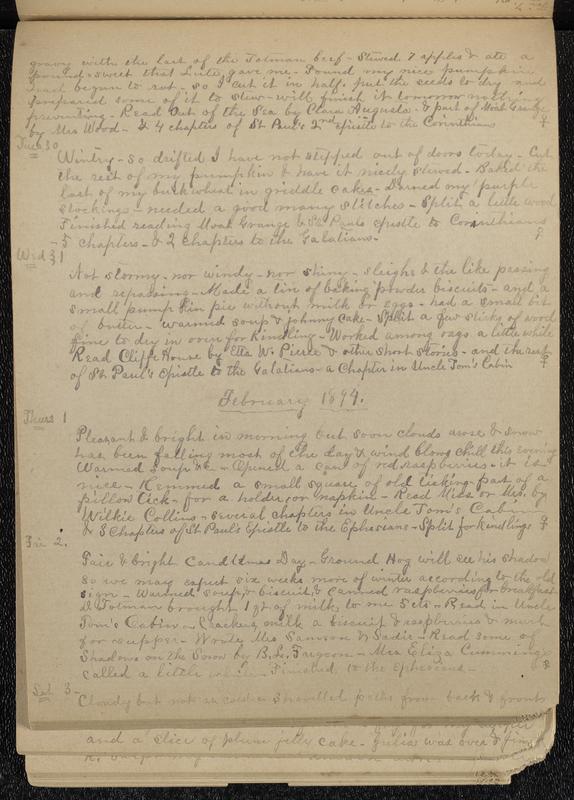 gravy with the last of the Tolman beef - Stewed 7 apples & ate a
pound-sweet that Luile gave me - Found my nice pumpkin
had begun to rot - so I cut it in half, put the seeds to dry and
prepared some of it to stew - will finish it tomorrow nothing
preventing - Read Out of the Sea by Clara Augusta - & part of Moat Grange
by Mrs Wood - & 4 chapters of St Paul's 2nd epistle to the Corinthians
Tues 30
Wintry - so drifted I have not stepped out of doors today - Cut
the rest of my pumpkin & have it nicely stewed - Baked the
last of my buckwheat in griddle cakes - Darned my purple
stockings - needed a good many stitches - Split a little wood
Finished reading Moat Grange & St Pauls epistle to Corinthians
- 5 chapters - & 2 chapters to the Galatians -
Wed 31
Not stormy - nor windy - nor shiny - sleighs & the like passing
and repassing - Made a tin of baking powder biscuits - and a
small pumpkin pie without milk or eggs - had a small bit
of butter - warmed soup & johnny cake - Split a few sticks of wood
fine to dry in oven for kindling - Worked among rags a little while
Read Cliffe House by Etta W. Pierce & other short stories - and the rest
of St. Paul's Epistle to the Galatians - a Chapter in Uncle Tom's Cabin
February 1894.
Thurs 1
Pleasant & bright in morning but soon clouds arose & snow
has been falling most of the day & wind blows chill this evening
Warmed soup &c - Opened a can of red raspberries - it is
nice - Hemmed a small square of old ticking - part of a
pillow tick - for a holder, or napkin - Read Miss or Mrs. by
Wilkie Collins - several chapters in Uncle Tom's Cabin
& 3 Chapters of St Paul's Epistle to the Ephesians - Split for kindlings
Fri 2.
Fair & bright Candlemas Day - Ground Hog will see his shadow
so we may expect six weeks more of winter according to the old
sign - Warmed soup, & biscuit, & canned raspberries for breakfast
D Tolman brought 1 qt of milk to me 5cts - Read in Uncle
Tom's Cabin - Crackers milk a biscuit & raspberries &
for supper - Wrote Mrs Samson & Sadie - Read some of
Shadows on the Snow by B. L. Farjeon - Mrs Eliza Cummings
called a little while - Finished the Ephesians -
Sat 3 -
Cloudy but not so cold - shovelled paths from back & front
and a slice of plum jelly cake - Julia was over &